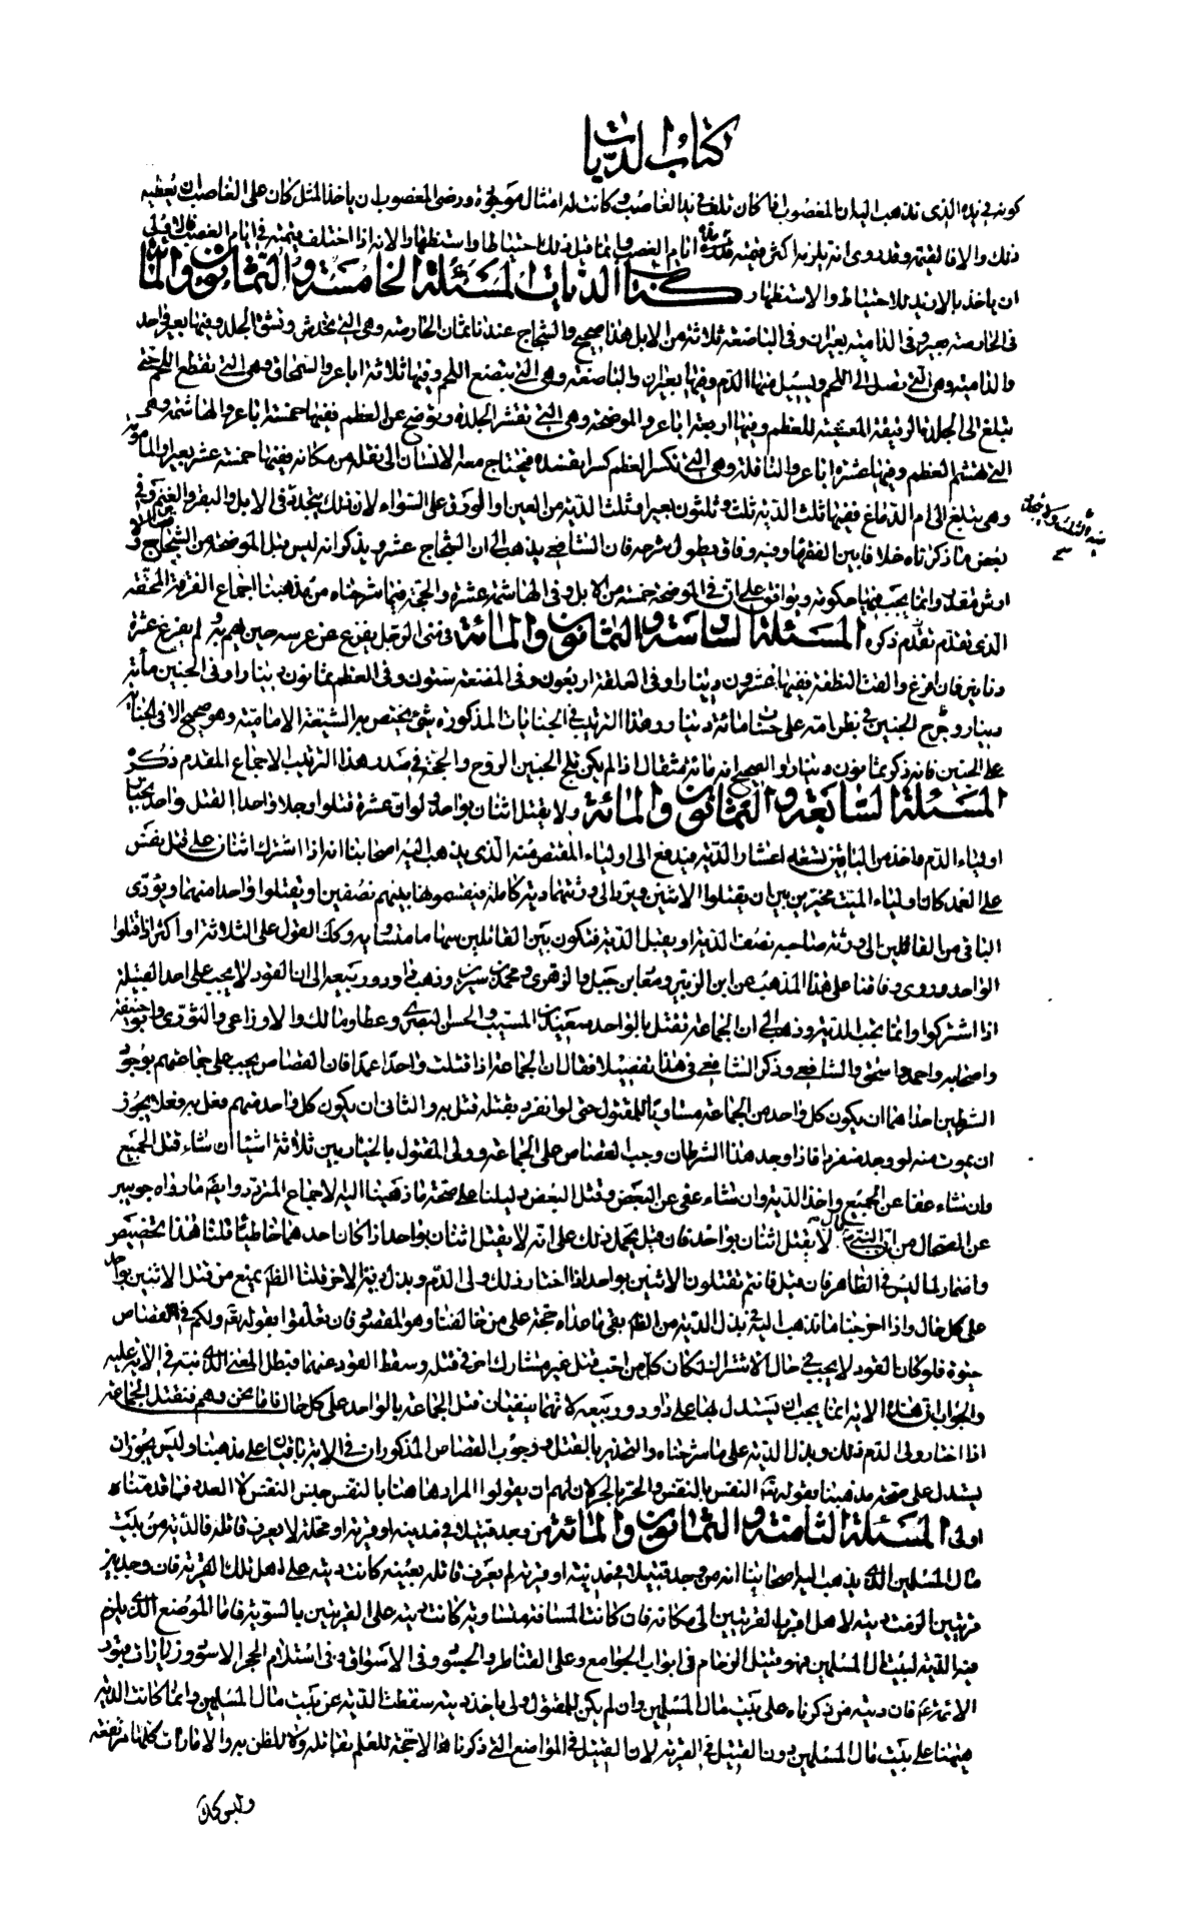 كتاب الديات
كونه في يده الذي نذهب اليه ان المغصوب اذا كان تلف في يد الغاصب وكانت له امثال موجودة ورضى المغصوب ان ياخذ المثل كان على الغاصب ان يعطيه
ذلك والا فالقيمة وقد روى انه يلزمه اكثر قيمته مدة ايام الغصب وانما قيل ذلك احتياطا واستظهارا لانه اذا اختلف قيمته في ايام الغصب فالاولى
ان ياخذ بالازيد للاحتياط والاستظهار كتاب الديات المسئلة الخامسة والثمانون والمائة
في الخارصة بعير وفي الدامية بعيران وفي الباضعة ثلاثة من الابل هذا صحيح والشجاج عندنا ثمان الخارصة وهي التي تخدش وتشق الجلد وفيها بعير واحد
والدامية وهي التي تصل الى اللحم ويسيل منها الدم وفيها بعيران والباضعة وهي التي تبضع اللحم وفيها ثلاثة اباعر والسمحاق وهي التي تقطع اللحم حتى
تبلغ الى الجلدة الرقيقة المغشية للعظم وفيها اربعة اباعر والموضحة وهي التي تقشر الجلدة وتوضح عن العظم ففيها خمسة اباعر والهاشمة وهي
التي تهشم العظم وفيها عشرة اباعر والناقلة وهي التي تكسر العظم كسرا يفسده فيحتاج معه الانسان الى نقله من مكانه وفيها خمسة عشر بعيرا والمامومة
وهي تبلغ الى ام الدماغ ففيها ثلث الدية ثلث وثلثون بعيرا وثلث الدية من العين او الورق على السواء لان ذلك يتحدد في الابل والبقر والغنم وفي
بعض ما ذكرناه خلاف بين الفقهاء وفيه وفاق يطول شرحه فان الشافعي يذهب الى ان الشجاج عشر ويذكر انه ليس قبل الموضحة من الشجاج
ارش مقدر وانما يجب فيها حكومة ويوافق على ان في الموضحة خمسة من الابل وفي الهاشمة عشرة والحجة فيما شرحناه من مذهبنا اجماع الفرقة المحقة
الذي تقدم ذكره المسئلة السادسة والثمانون والمائة في منى الرجل يفزع عن عرسه حين لم يفرغ عشرة
دنانير فان افرغ والقت النطفة ففيها عشرون دينارا وفي العلقة اربعون وفي المضغة ستون وفي العظم ثمانون دينارا وفي الجنين مائة
دينار وجرح الجنين في بطن امه على حساب المائة دينار وهذا الترتيب في الجنايات المذكورة شيء يختص به الشيعة الامامية وهو صحيح الا في الجناية
على الجنين فانه ذكر ثمانون دينارا والصحيح انه مائة مثقال اذا لم يكن يلج الجنين الروح والحجة في صدر هذا الترتيب الاجماع المقدم ذكره
المسئلة السابعة والثمانون والمائة ولا يقتل اثنان بواحد ولو ان عشرة قتلوا رجلا واحدا لقتل واحد يختار
اولياء الدم واخذ من الباقين تسعة اعشار الدية فيدفع الى اولياء المقتص منه الذي يذهب اليه اصحابنا انه اذا اشترك اثنان على قتل نفس
على العمد كان اولياء الميت مخيرين بين ان يقتلوا الاثنين ويردوا الى ورثتهما دية كاملة فيقتسمونها بينهم نصفين او يقتلوا واحدا منهما ويؤدى
الباقي من القاتلين الى ورثة صاحبه نصف الدية او يقبل الدية فتكون بين القاتلين سهاما متساوية وكك القول على الثلاثة او اكثر اذا قتلوا
الواحد وروى وفاقنا على هذا المذهب عن ابن الزبير ومعاذ بن جبل والزهري ومحمد بن سيرين وذهب داود وربيعه الى ان القود لا يجب على احد القتيلة
اذا اشتركوا وانما يجب الدية وذهب الى ان الجماعة تقتل بالواحد سعيد بن المسيب والحسن البصري وعطا ومالك والاوزاعي والثوري وابو حنيفة
واصحابه واحمد واسحق والشافعي وذكر الشافعي في هذا تفضيلا فقال ان الجماعة اذا قتلت واحدا عمدا فان القصاص يجب على جماعتهم بوجود
الشرطين احداهما ان يكون كل واحد من الجماعة مساويا للمقتول حتى لو انفرد بقتله قتل به والثاني ان يكون كل واحد منهم فعل به فعلا يجوز
ان يموت منه لو وجد منفردا فاذا وجد هذا الشرطان وجب القصاص على الجماعة وولى المقتول بالخيار بين ثلاثة اشياء ان شاء قتل الجميع
وان شاء عفا عن الجميع واخذ الدية وان شاء عفى عن البعض وقتل البعض دليلنا على صحة ما ذهبنا اليه الاجماع المتردد وايضا ما رواه جويبر
عن الضحاك من ان النبي قال لا يقتل اثنان بواحد فان قيل يحمل ذلك على انه لا يقتل اثنان بواحد اذا كان احدهما خاطئا قلنا هذا تخصيص
واضمار لما ليس في الظاهر فان قيل فانتم تقتلون الاثنين بواحد اذا اختار ذلك ولى الدم وبذل دية الاخر قلنا الظاهر يمنع من قتل الاثنين بواحد
على كل حال واذا اخرجنا ما نذهب اليه في بذل الدية من الظاهر بقى ما عداه حجة على من خالفنا وهو المقصود فان تعلقوا بقوله تعالى ولكم في القصاص
حيوة فلو كان القود لا يجب في حال الاشتراك لكان كل من احب قتل غيره شارك اخر في قتله وسقط القود عنهما فيبطل المعنى الذي نبه في الاية عليه
والجواب ان هذه الاية انما يجب ان يستدل بها على داود وربيعه لانهما ينفيان قتل الجماعة بالواحد على كل حال فاما نحن وهم فنقتل الجماعة
اذا اختار ولى الدم ذلك وبذل الدية على ما شرحناه والضدية بالقتل ووجوب القصاص المذكوران في الاية ثابتان على مذهبنا وليس يجوز ان
يستدل على صحة مذهبنا بقوله تعالى النفس بالنفس والحر بالحر لان لهم ان يقولوا المراد ههنا بالنفس جنس النفس لا العدد فما قدمناه
اولى المسئلة الثامنة والثمانون والمائة من وجد قتيلا في مدينة او قرية او محلة لا يعرف قاتله فالدية من بيت
مال المسلمين الذي يذهب اليه اصحابنا انه من وجد قتيلا في مدينة او قرية لم يعرف قاتله بعينه كانت ديته على اهل تلك القرية فان وجد بين
قريتين الزمت ديته لاهل اقرب القريتين الى مكانه فان كانت المسافة متساوية كانت ديته على القريتين بالسوية فاما الموضع الذي يلزم
فيه الدية لبيت مال المسلمين فهو قتيل الزحام في ابواب الجوامع وعلى القناطر والجسور وفي الاسواق وفي استلام الحجر الاسود وزيارات قبور
الائمة ع فان دية من ذكرناه على بيت مال المسلمين وان لم يكن للمقتول ولى ياخذ ديته سقطت الدية عن بيت مال المسلمين وانما كانت الدية
هيهنا على بيت مال المسلمين دون القتيل في القرية لان القتيل في المواضع التي ذكرناها لا حجة للعلم بقاتله ولا للظن به والامارات كلها مرتفعة
وليس كك